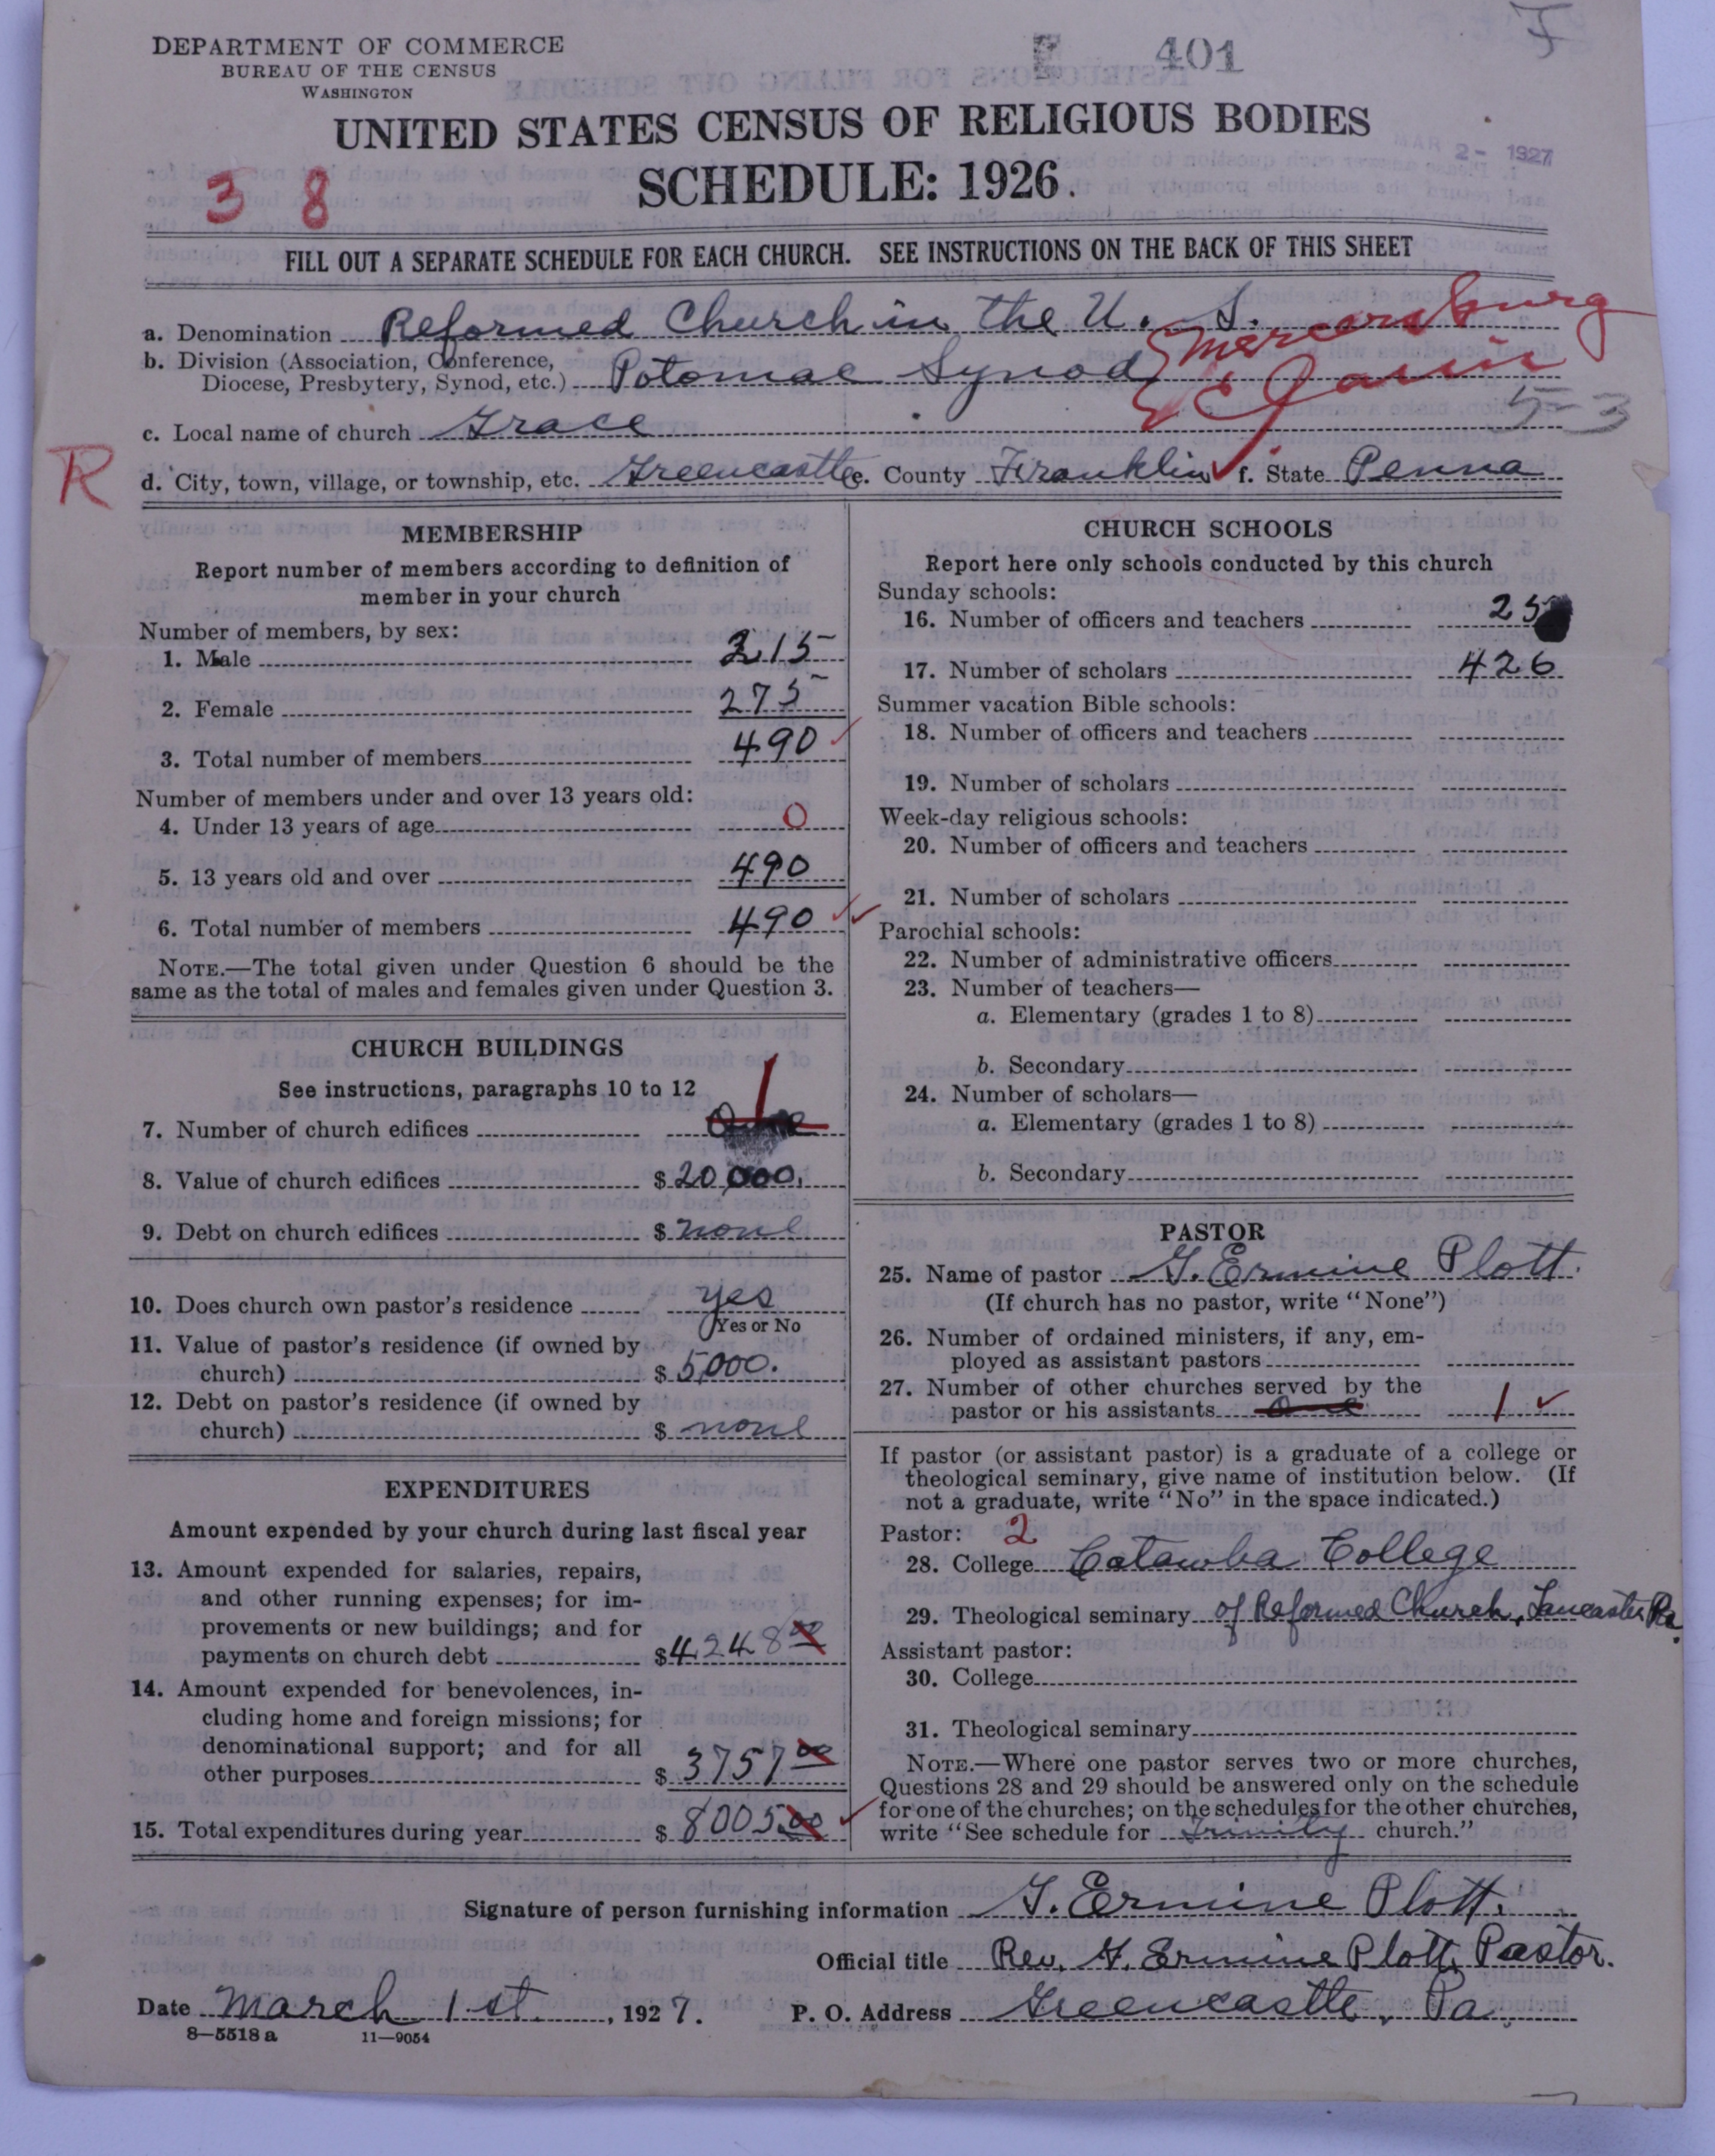 DEPARTMENT OF COMMERCE
BUREAU OF THE CENSUS
WASHINGTON
401
UNITED STATES CENSUS OF RELIGIOUS BODIES
MAR 2 - 1927
SCHEDULE: 1926
3 8
FILL OUT A SEPARATE SCHEDULE FOR EACH CHURCH. SEE INSTRUCTIONS ON THE BACK OF THIS SHEET
a. Denomination Reformed Church in the U. S.
Mercersburg
b. Division (Association, Conference, Diocese, Presbytery, Synod, etc.) Potomac Synod
53
c. Local name of church Grace
R
d. City, town, village, or township, etc. Greencastle e. County Franklin f. State Penna
MEMBERSHIP
Report number of members according to definition of
member in your church
Number of members, by sex:
1. Male 215
2. Female 275
3. Total number of members 490
Number of members under and over 13 years old:
4. Under 13 years of age 0
5. 13 years old and over 490
6. Total number of members 490
NOTE.—The total given under Question 6 should be the
same as the total of males and females given under Question 3.
CHURCH BUILDINGS
See instructions, paragraphs 10 to 12
7. Number of church edifices 1
8. Value of church edifices $20,000.
9. Debt on church edifices $ none
10. Does church own pastor's residence yes
Yes or No
11. Value of pastor's residence (if owned by
church) $ 5,000.
12. Debt on pastor's residence (if owned by
church) $ none
EXPENDITURES
Amount expended by your church during last fiscal year
13. Amount expended for salaries, repairs,
and other running expenses; for im-
provements or new buildings; and for
payments on church debt $4248 00
14. Amount expended for benevolences, in-
cluding home and foreign missions; for
denominational support; and for all
other purposes $ 3757 00
15. Total expenditures during year $ 8005.00
CHURCH SCHOOLS
Report here only schools conducted by this church
Sunday schools:
16. Number of officers and teachers 25
17. Number of scholars 426
Summer vacation Bible schools:
18. Number of officers and teachers
19. Number of scholars
Week-day religious schools:
20. Number of officers and teachers
21. Number of scholars
Parochial schools:
22. Number of administrative officers
23. Number of teachers—
a. Elementary (grades 1 to 8)
b. Secondary
24. Number of scholars—
a. Elementary (grades 1 to 8)
b. Secondary
PASTOR
25. Name of pastor G. Ermine Plott.
(If church has no pastor, write "None")
26. Number of ordained ministers, if any, em-
ployed as assistant pastors
27. Number of other churches served by the
pastor or his assistants one 1
If pastor (or assistant pastor) is a graduate of a college or
theological seminary, give name of institution below. (If
not a graduate, write "No" in the space indicated.)
Pastor: 2
28. College Catawba College
29. Theological seminary of Reformed Church, Lancaster Pa.
Assistant pastor:
30. College
31. Theological seminary
NOTE.—Where one pastor serves two or more churches,
Questions 28 and 29 should be answered only on the schedule
for one of the churches; on the schedules for the other churches,
write "See schedule for Trinity church."
Signature of person furnishing information G. Ermine Plott.
Official title Rev. G. Ermine Plott, Pastor.
Date March 1st, 1927. P. O. Address Greencastle, Pa.
8—5518 a 11—9054